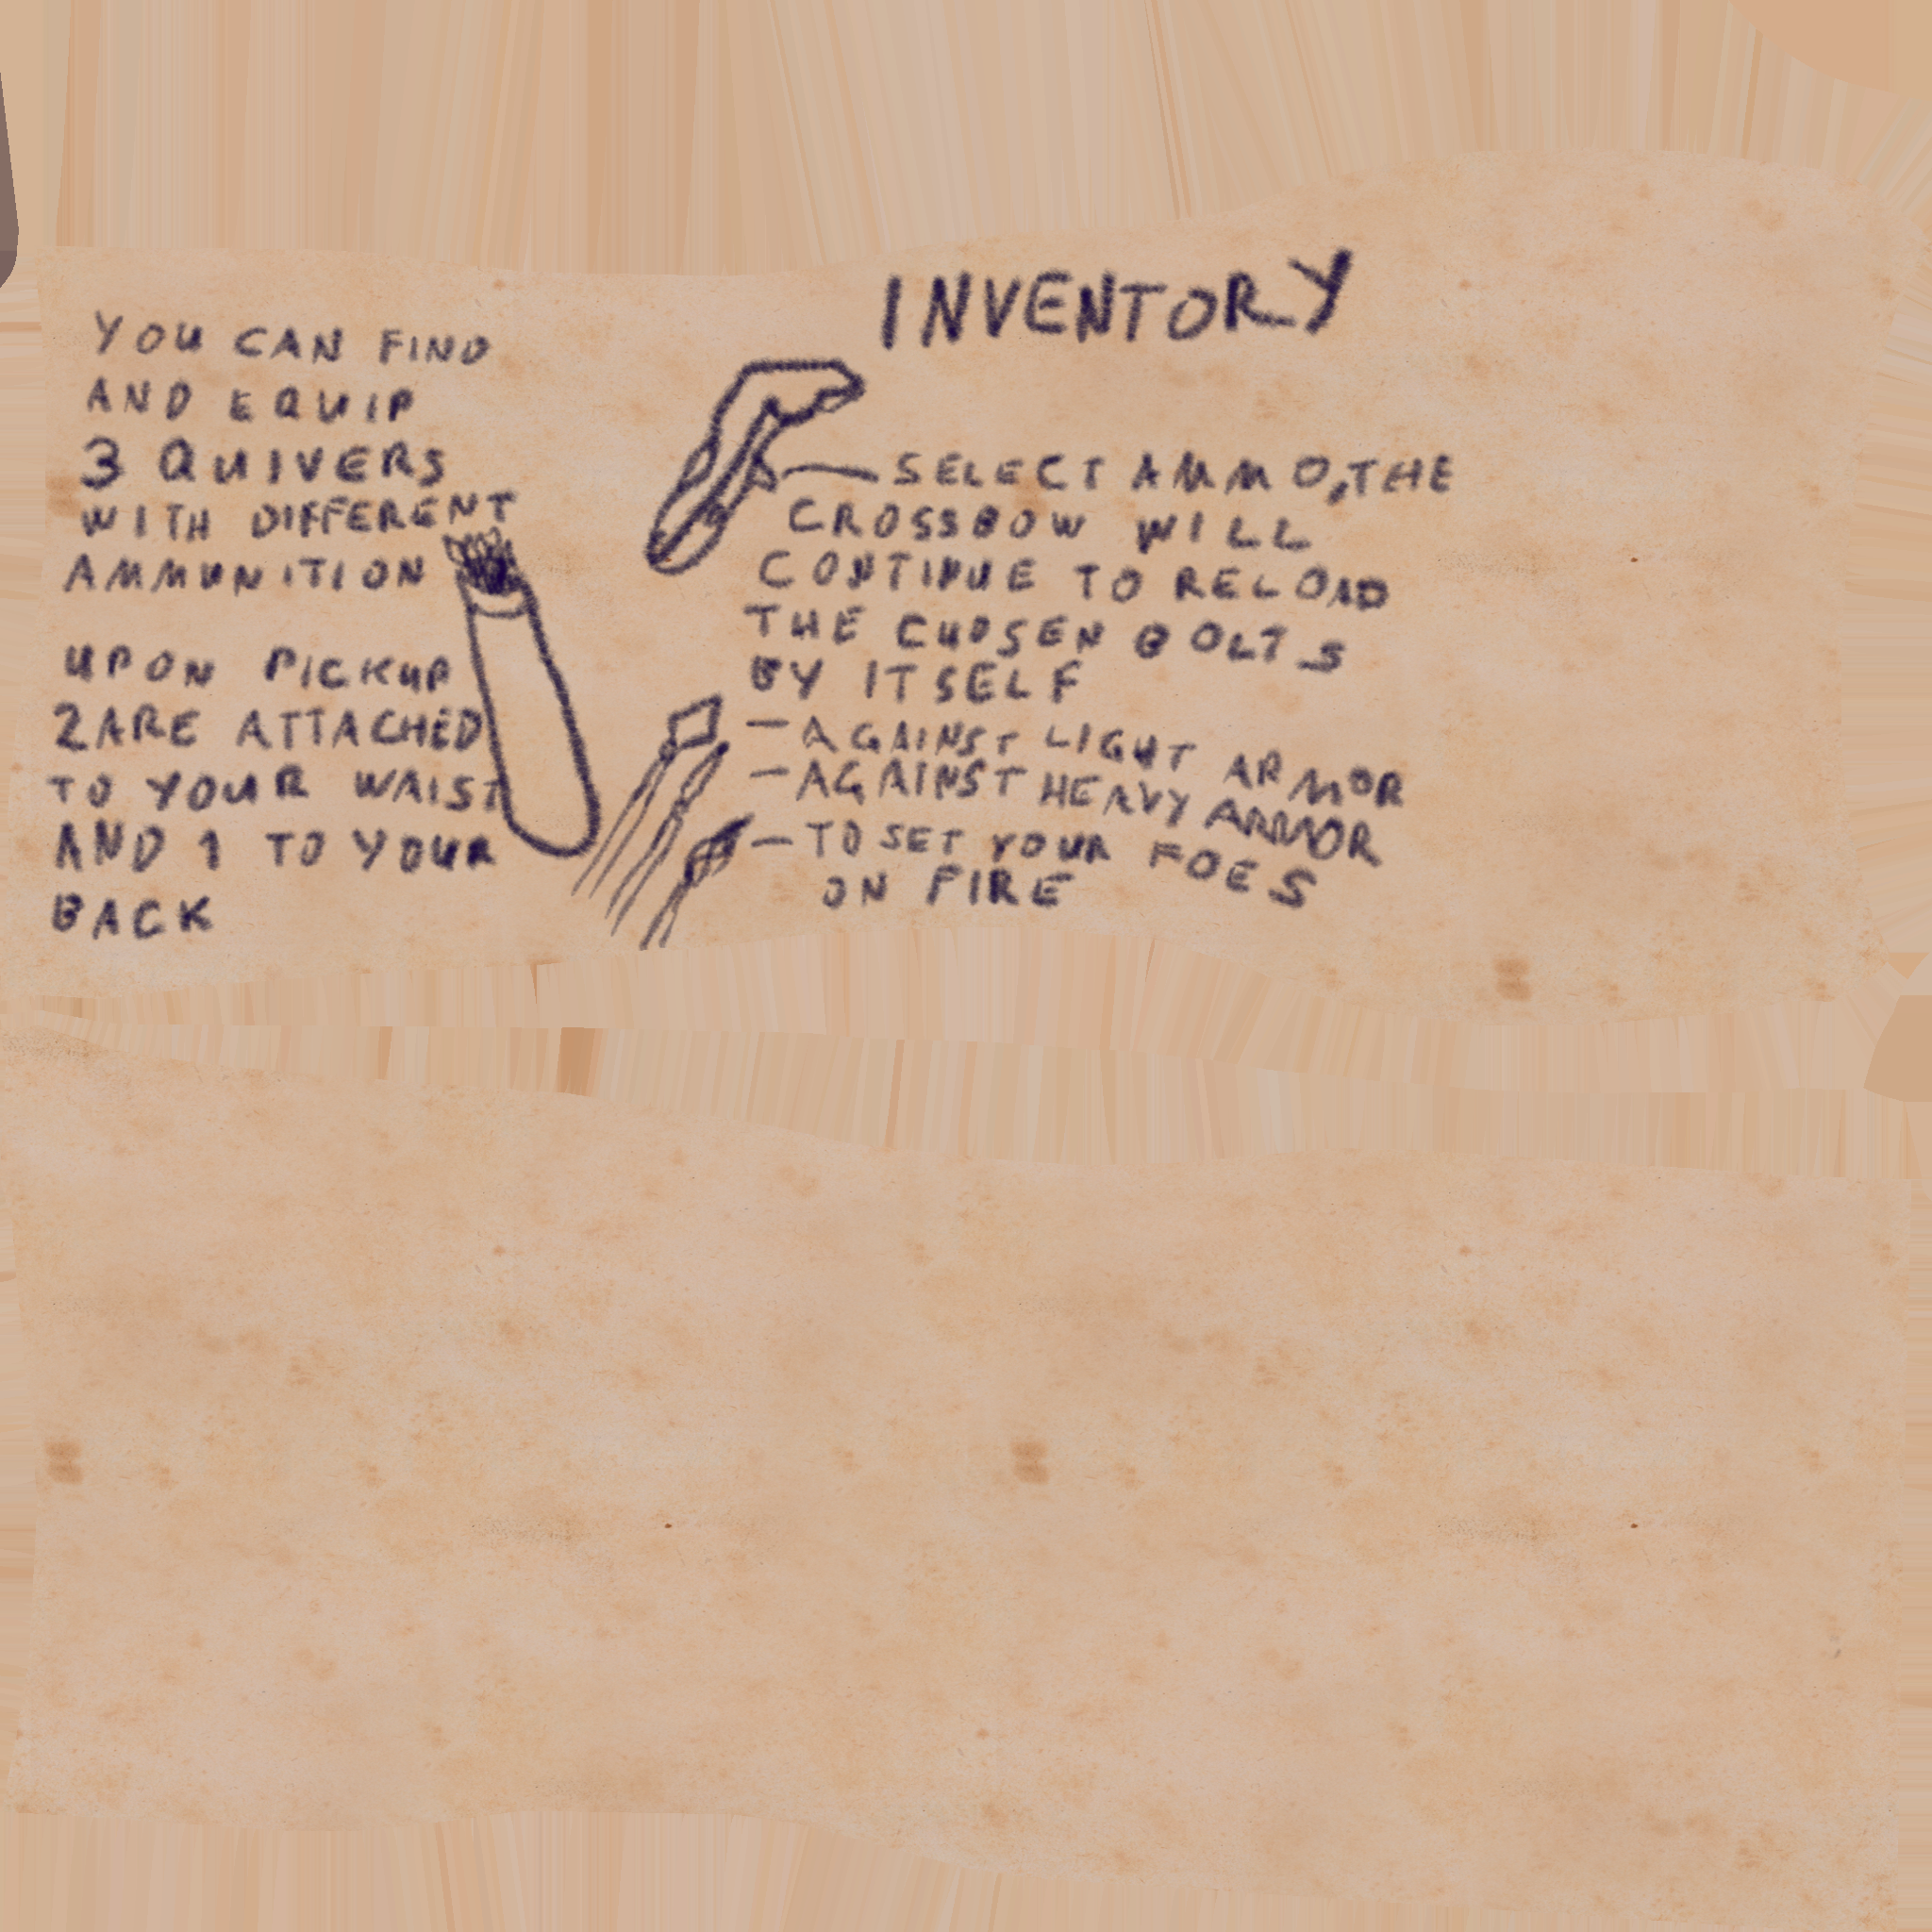 INVENTORY
YOU CAN FIND
AND EQUIP
3 QUIVERS
WITH DIFFERENT
AMMUNITION
UPON PICKUP
2 ARE ATTACHED
TO YOUR WAIST
AND 1 TO YOUR
BACK
— SELECT AMMO, THE
CROSSBOW WILL
CONTINUE TO RELOAD
THE CHOSEN BOLTS
BY ITSELF
— AGAINST LIGHT ARMOR
— AGAINST HEAVY ARMOR
— TO SET YOUR FOES
ON FIRE